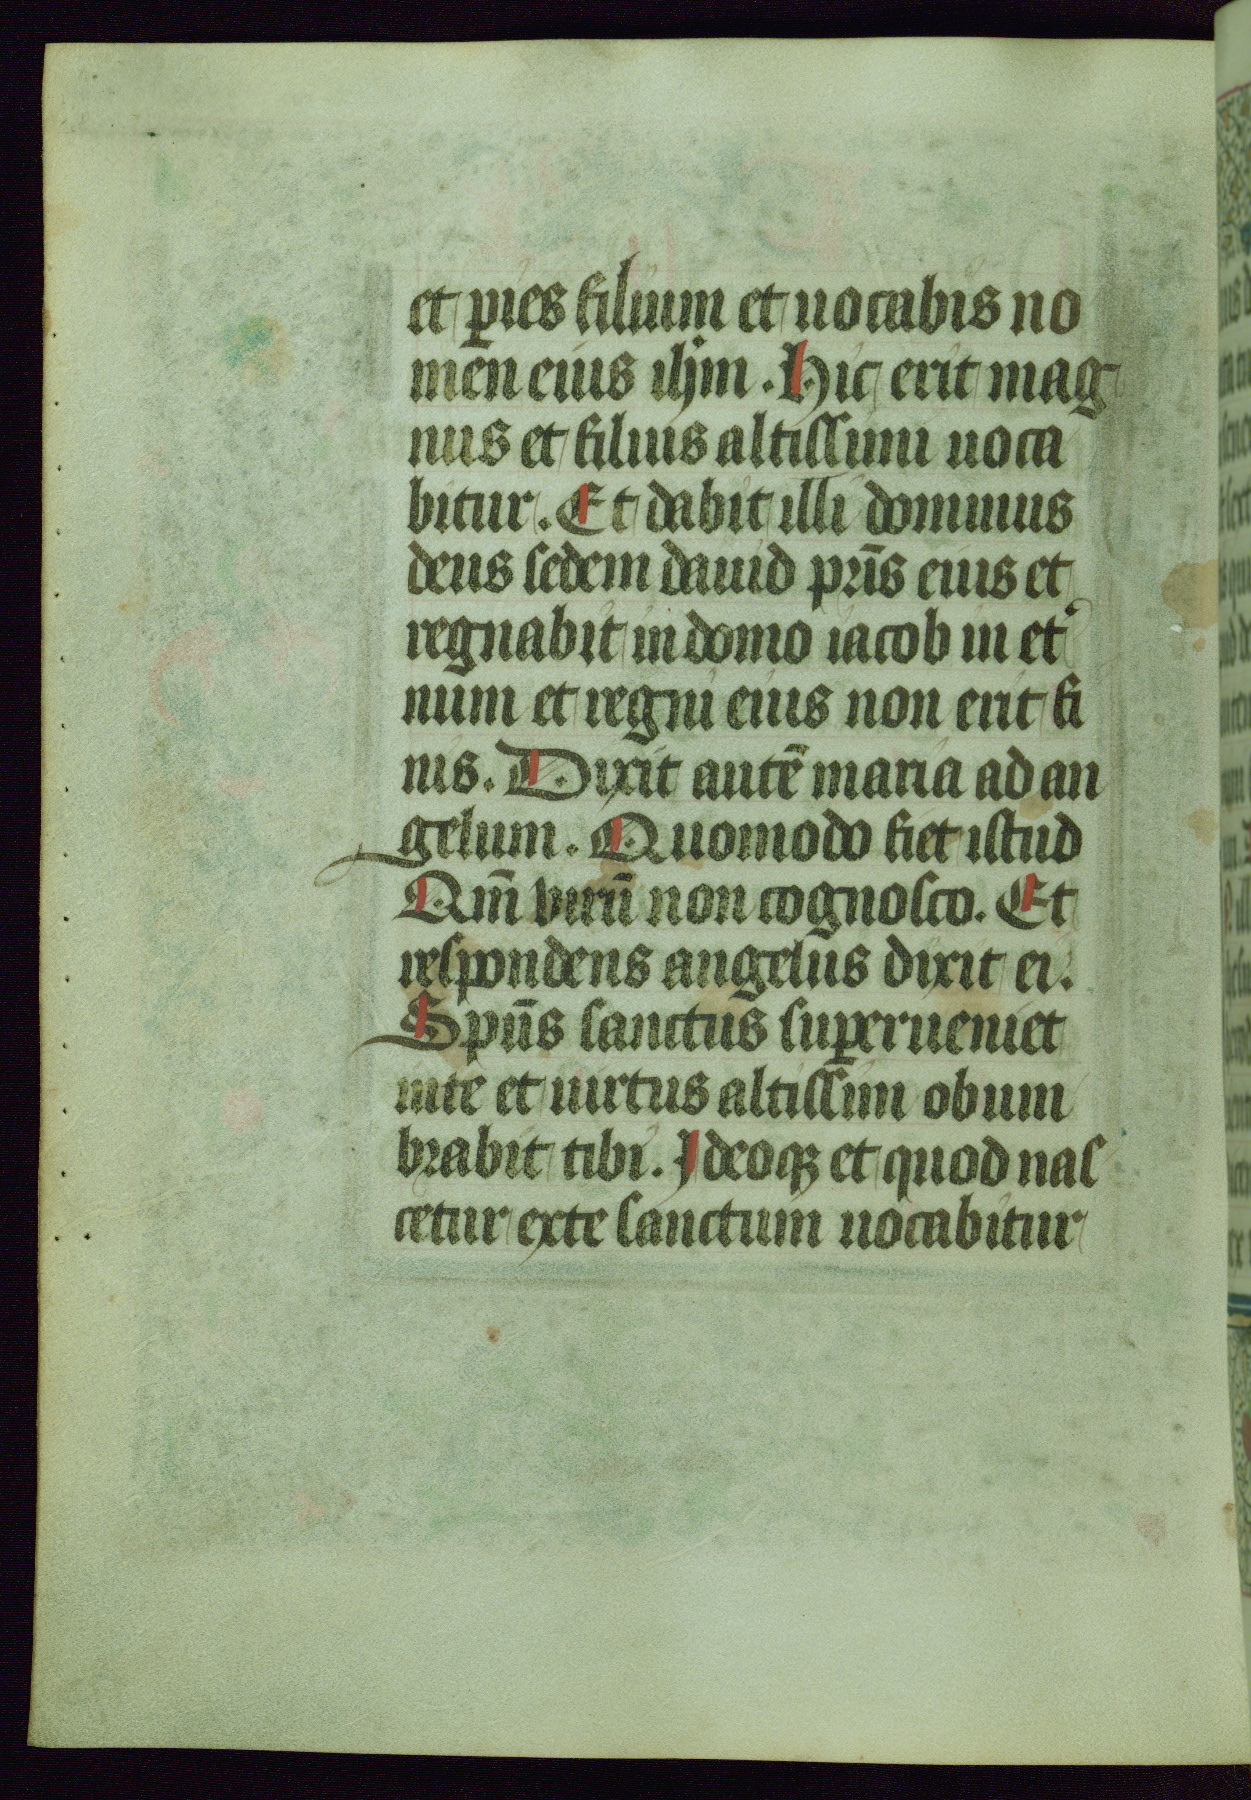 et p̲ies filium et uocabis no
men eius ihm̄. Hic erit mag
nus et filius altissimi uoca
bitur. Et dabit illi dominus
deus sedem dauid pr̄is eius et
regnabit in domo iacob in et̾
num et regni eius non erit fi
nis. Dixit autē maria ad an
gelum. Quomodo fiet istud
Qm̄ virū non cognosco. Et
respondens angelus dixit ei.
Spūs sanctus superueniet
inte et uirtus altissimi obum
brabit tibi. Ideoqȝ et quod nas
cetur exte sanctum uocabitur